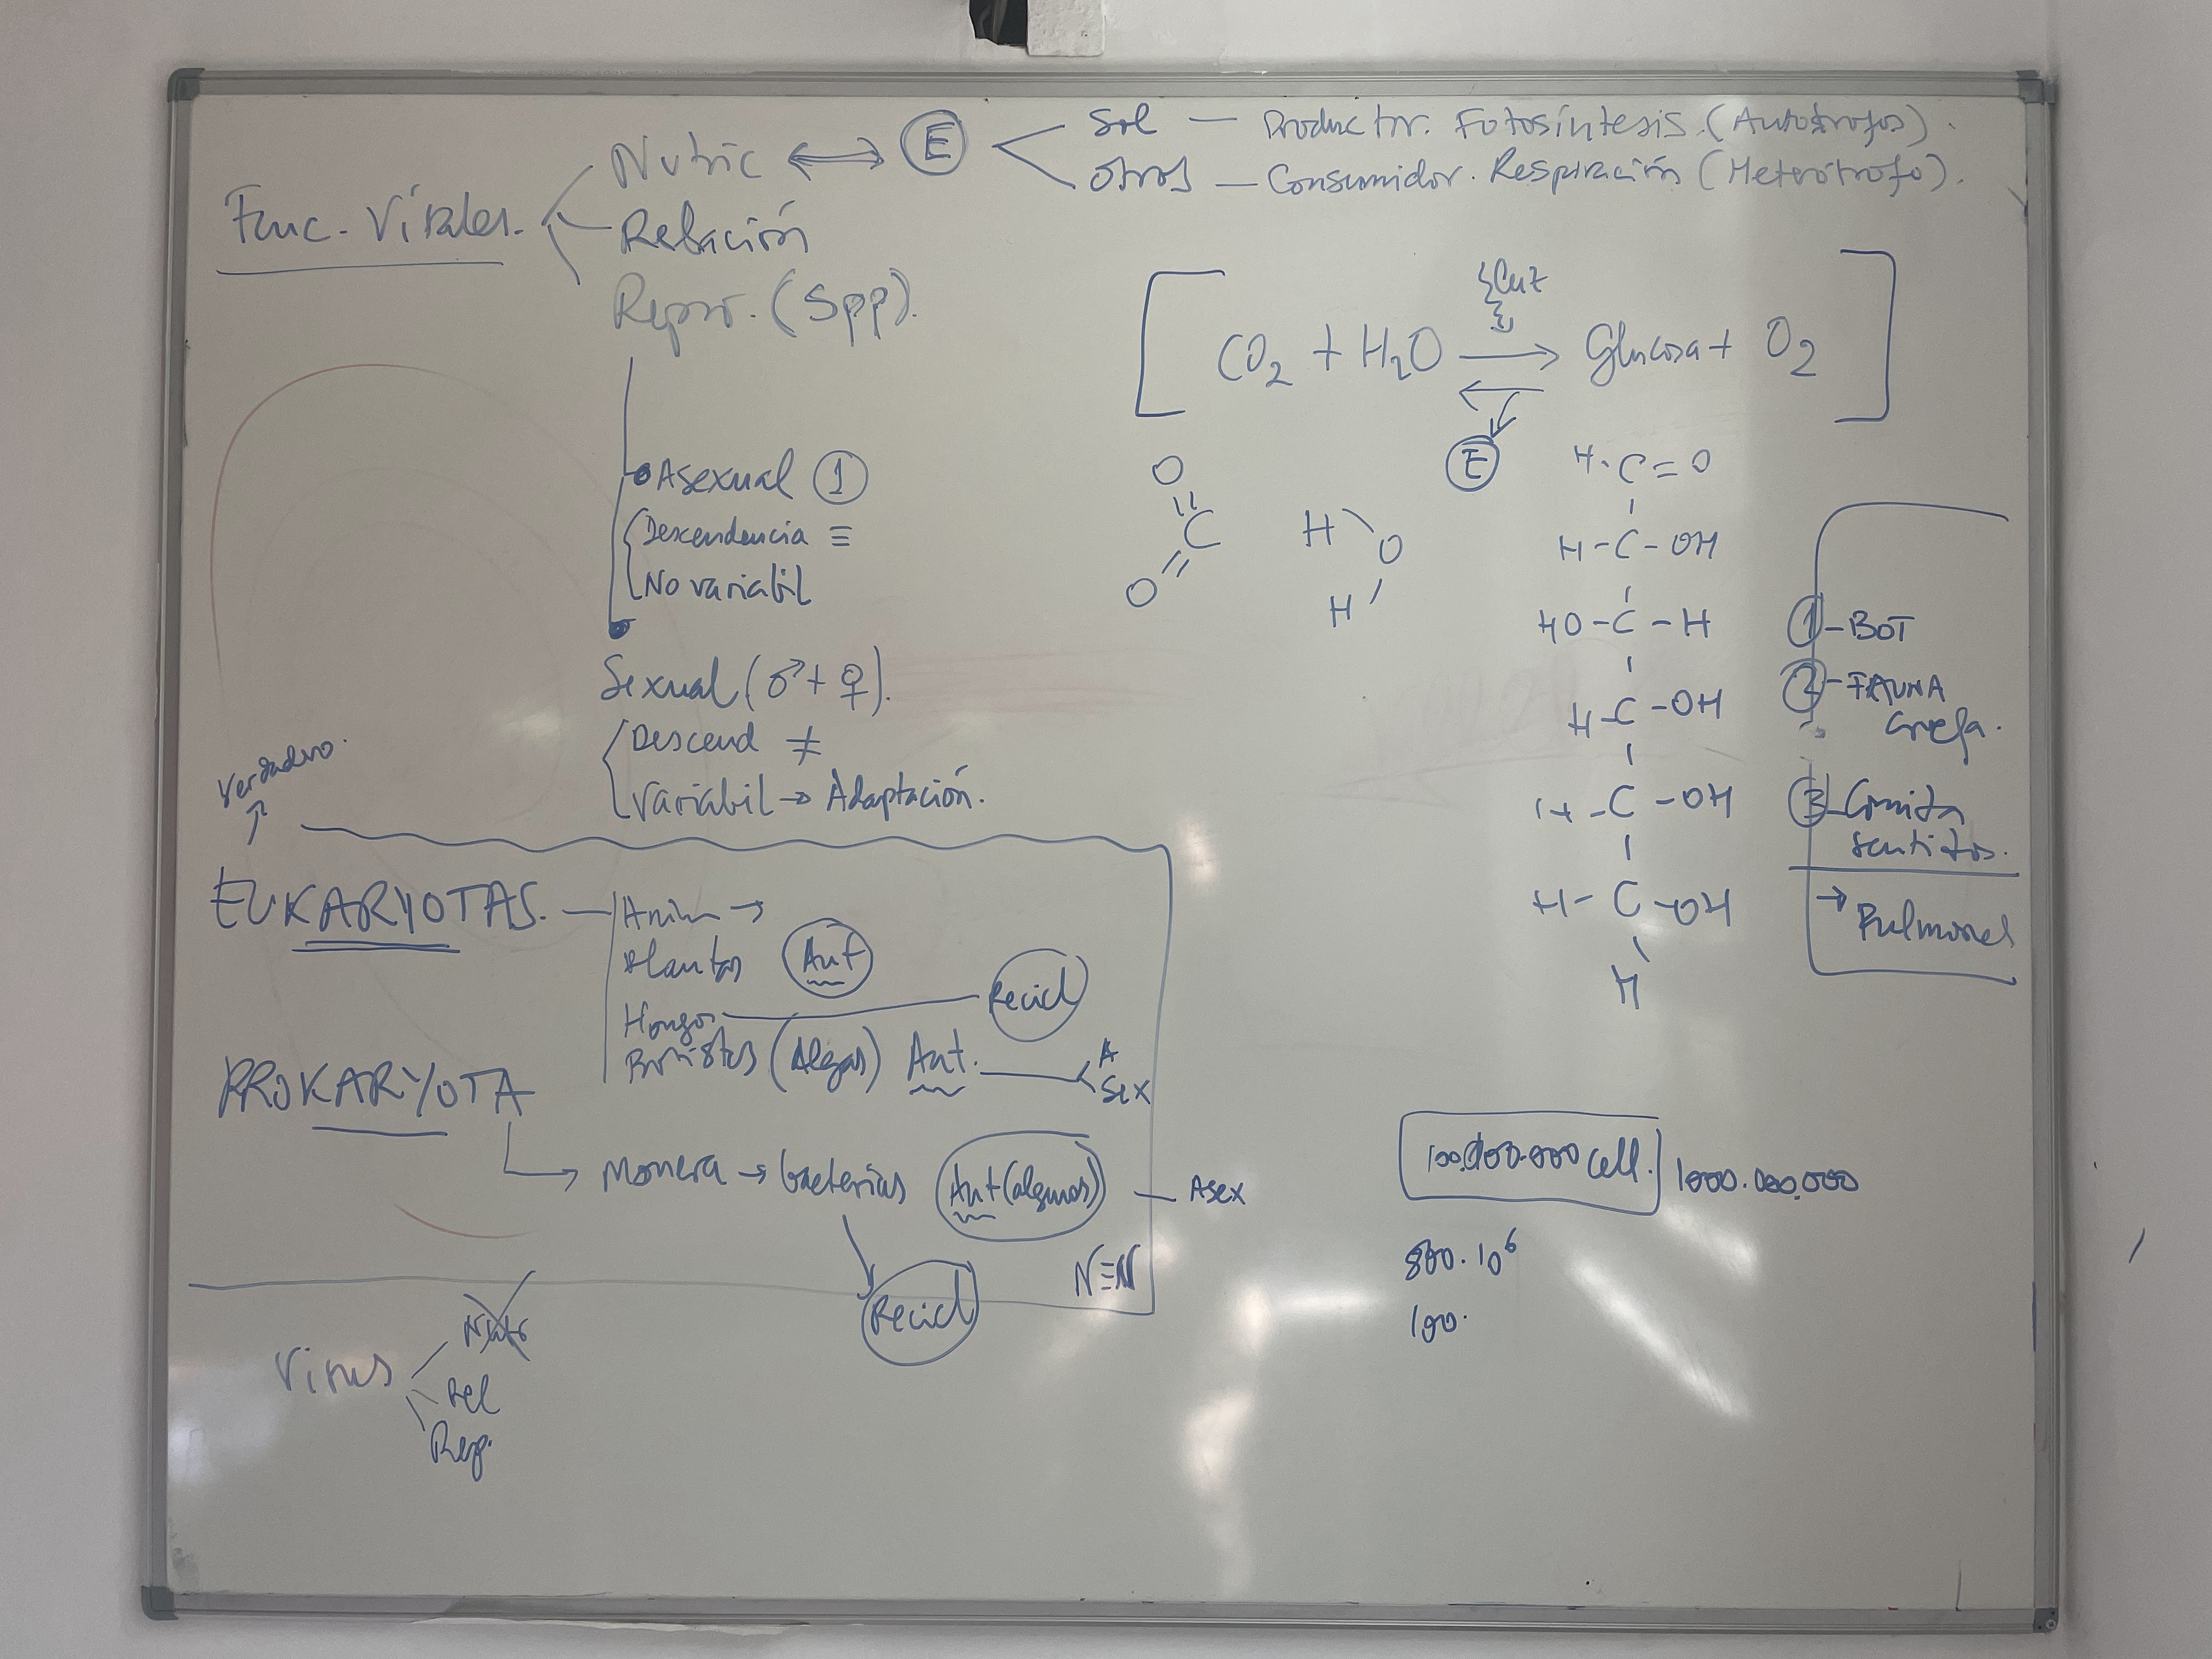 Func. Vitales.
Nutric ⟷ E
Sol — Productor. Fotosíntesis. (Autótrofos).
Otros — Consumidor. Respiración (Heterótrofo).
Relación
Repro. (Spp).
Luz
CO2 + H2O → Glucosa + O2
E
• Asexual 1
Descendencia ≡
No variabil
Sexual (♂ + ♀).
Descend ≠
Variabil → Adaptación.
O
C
O
H
O
H
H · C = O
H - C - OH
HO - C - H
H - C - OH
H - C - OH
H - C - OH
H
1 - BOT
2 - FAUNA
3 -
sentidos.
→ Pulmones
Verdadero.
EUKARYOTAS.
Anim →
Plantas Aut
Hongos Recicl
Protistas (Algas) Aut.
A
Sex
PROKARYOTA
Monera → bacterias Aut (algunas) — Asex
Recicl
N≡N
100.000.000 cell. 1000.000.000
800.10⁶
100.
Virus
Nutr
Rel
Rep.